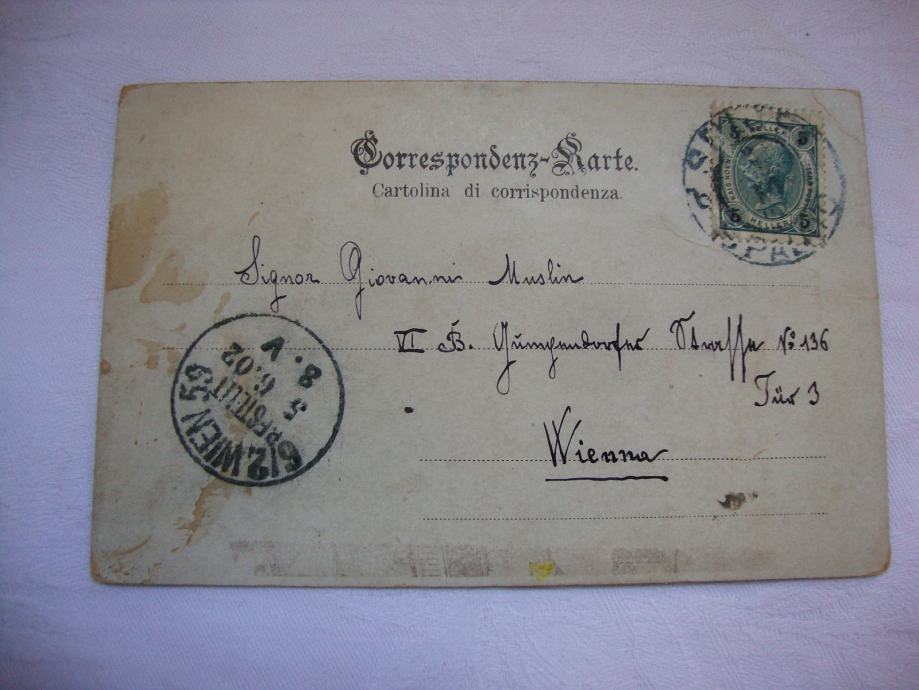 Correspondenz-Karte.
Cartolina di corrispondenza.
5 HELLER 5
5 HELLER 5
Signor Giovanni Muslin
VI B. Gumpendorfer Strasse No 136
Tür 3
Wienna
6/2 WIEN 56
BESTELLT
5 6.02
8. V